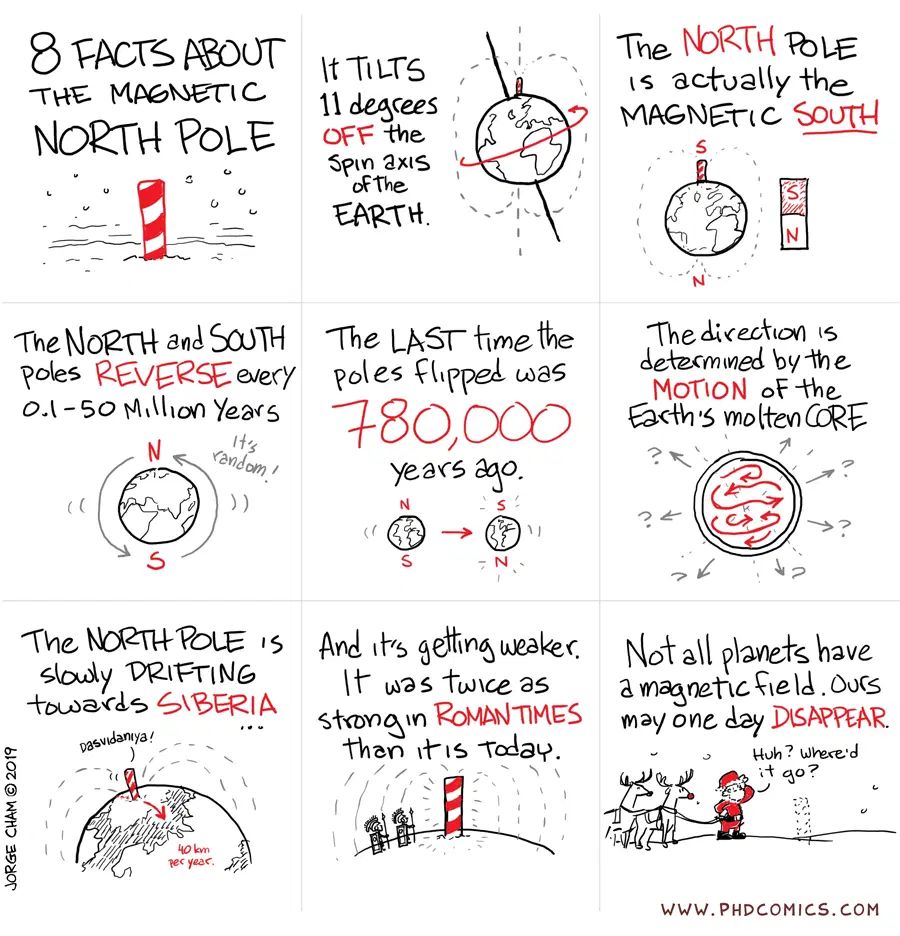 8 FACTS ABOUT
THE MAGNETIC
NORTH POLE
It TILTS
11 degrees
OFF the
spin axis
of the
EARTH.
The NORTH POLE
is actually the
MAGNETIC SOUTH
S
S
N
N
The NORTH and SOUTH
poles REVERSE every
0.1-50 Million Years
It's
random!
N
S
The LAST time the
poles flipped was
780,000
years ago.
N
S
S
N
The direction is
determined by the
MOTION of the
Earth's molten CORE
? ?
? ?
? ?
The NORTH POLE is
slowly DRIFTING
towards SIBERIA
...
Dasvidaniya!
40 km
per year.
And it's getting weaker.
It was twice as
strong in ROMAN TIMES
than it is today.
Not all planets have
a magnetic field. Ours
may one day DISAPPEAR.
Huh? Where'd
it go?
JORGE CHAM © 2019
WWW.PHDCOMICS.COM